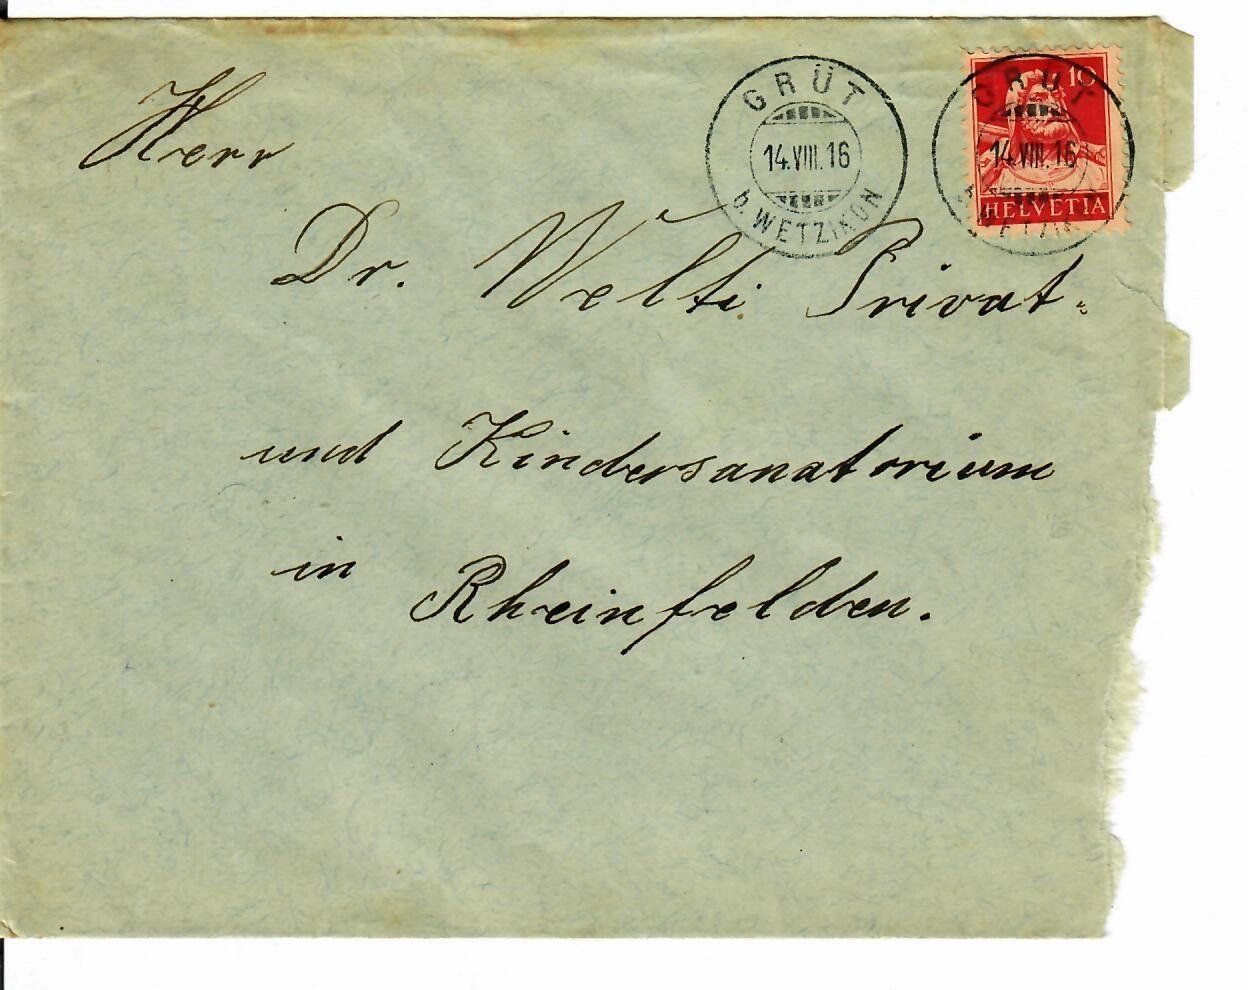 GRÜT
14.VIII.16
b. WETZIKON
10
GRÜT
14.VIII.16
HELVETIA
Herr
Dr. Welti Privat-
und Kindersanatorium
in Rheinfelden.